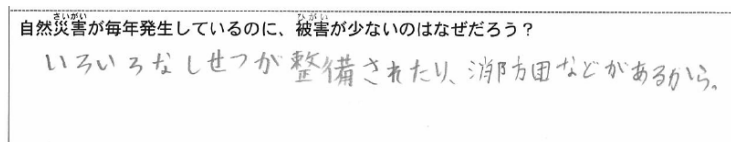 自然災害が毎年発生しているのに、被害が少ないのはなぜだろう？
いろいろなしせつが整備されたり、消防団などがあるから。